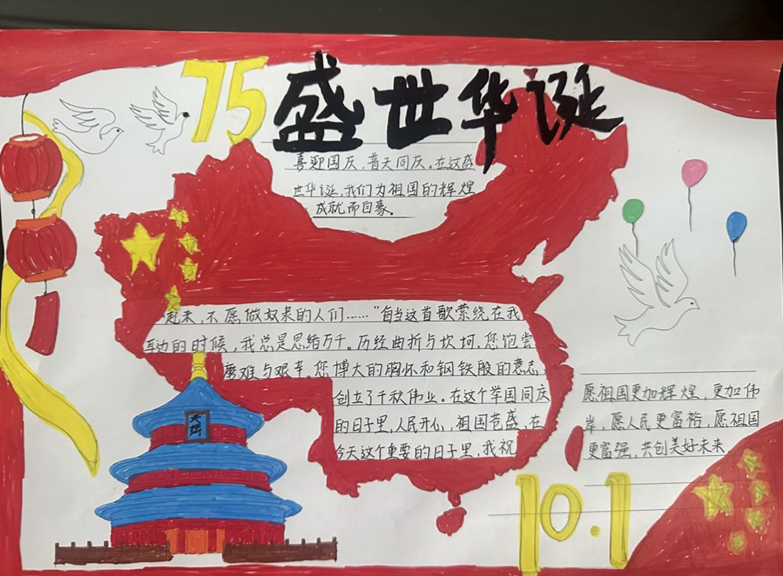 75 盛世华诞
喜迎国庆，普天同庆。在这盛
世华诞，我们为祖国的辉煌
成就而自豪。
起来，不愿做奴隶的人们……"每当这首歌萦绕在我
耳边的时候，我总是思绪万千。历经曲折与坎坷，您饱尝
磨难与艰辛。您博大的胸怀和钢铁般的意志
创立了千秋伟业。在这个举国同庆
的日子里，人民开心，祖国苍盛，在
今天这个重要的日子里，我祝
愿祖国更加辉煌，更加伟
岸，愿人民更富裕，愿祖国
更富强，共创美好未来
天坛
10.1